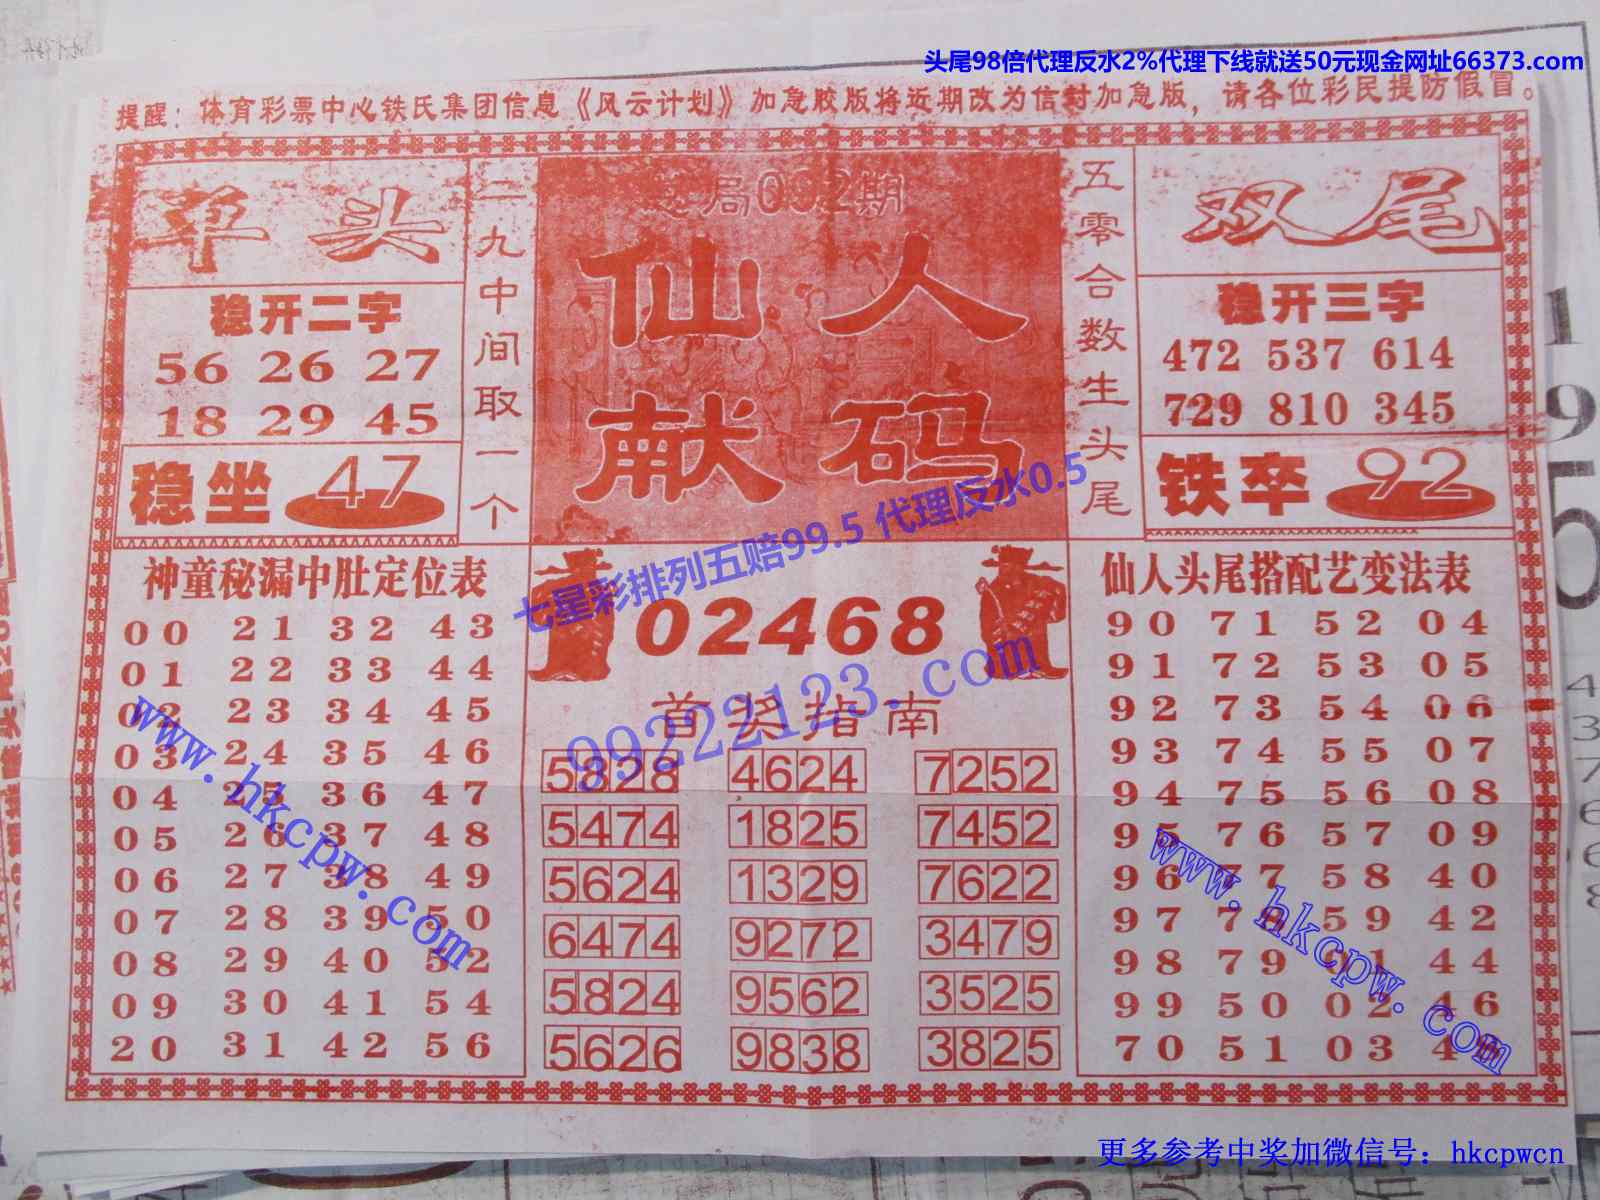 头尾98倍代理反水2%代理下线就送50元现金网址66373.com
提醒：体育彩票中心铁氏集团信息《风云计划》加急胶版将近期改为信封加急版，请各位彩民提防假冒。
单头
稳开二字
56 26 27
18 29 45
稳坐 47
二九中间取一个
局092期
仙人
献码
五零合数生头尾
双尾
稳开三字
472 537 614
729 810 345
铁卒 92
七星彩排列五赔99.5 代理反水0.5
99222123.com
神童秘漏中肚定位表
00 21 32 43
01 22 33 44
02 23 34 45
03 24 35 46
04 25 36 47
05 26 37 48
06 27 38 49
07 28 39 50
08 29 40 52
09 30 41 54
20 31 42 56
www.hkcpw.com
02468
首奖指南
5828 4624 7252
5474 1825 7452
5624 1329 7622
6474 9272 3479
5824 9562 3525
5626 9838 3825
仙人头尾搭配艺变法表
90 71 52 04
91 72 53 05
92 73 54 06
93 74 55 07
94 75 56 08
95 76 57 09
96 77 58 40
97 78 59 42
98 79 01 44
99 50 02 46
70 51 03 48
www.hkcpw.com
更多参考中奖加微信号：hkcpwcn